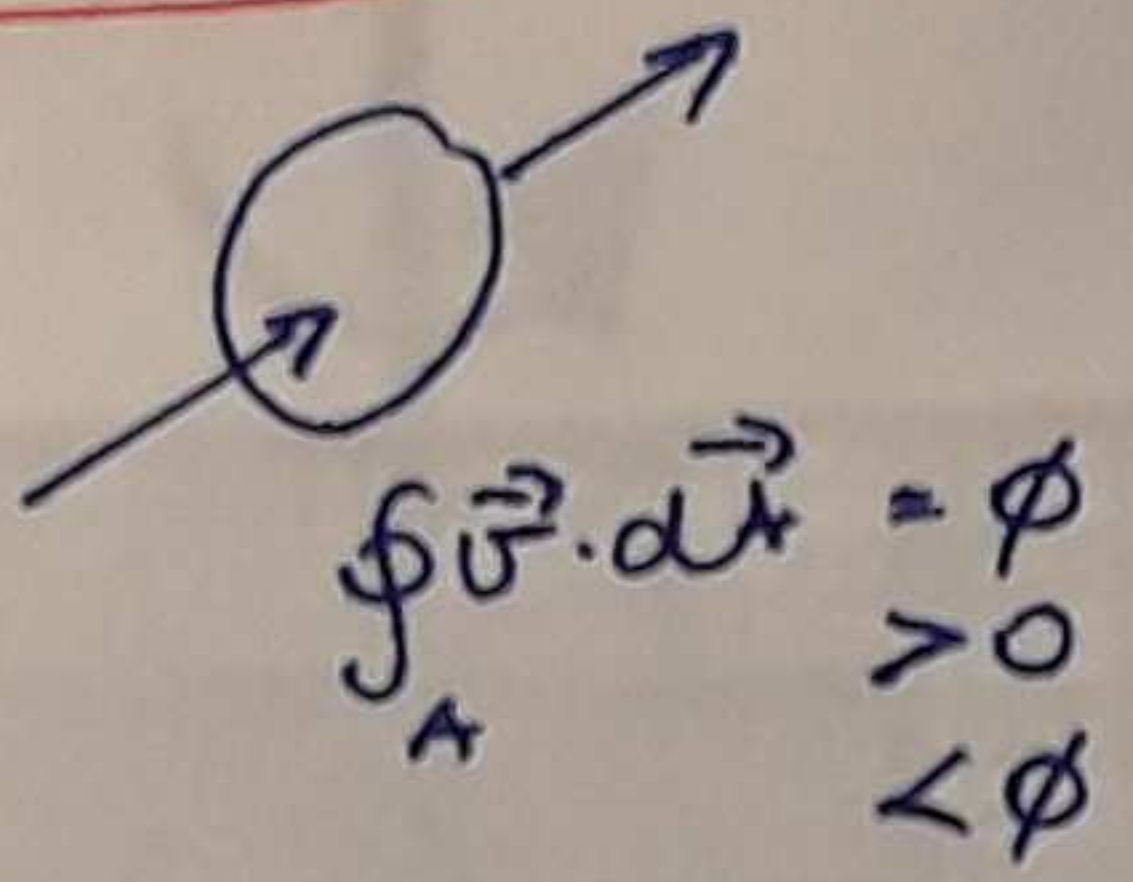 ∮_A v⃗ · dA⃗ = ϕ
> 0
< ϕ